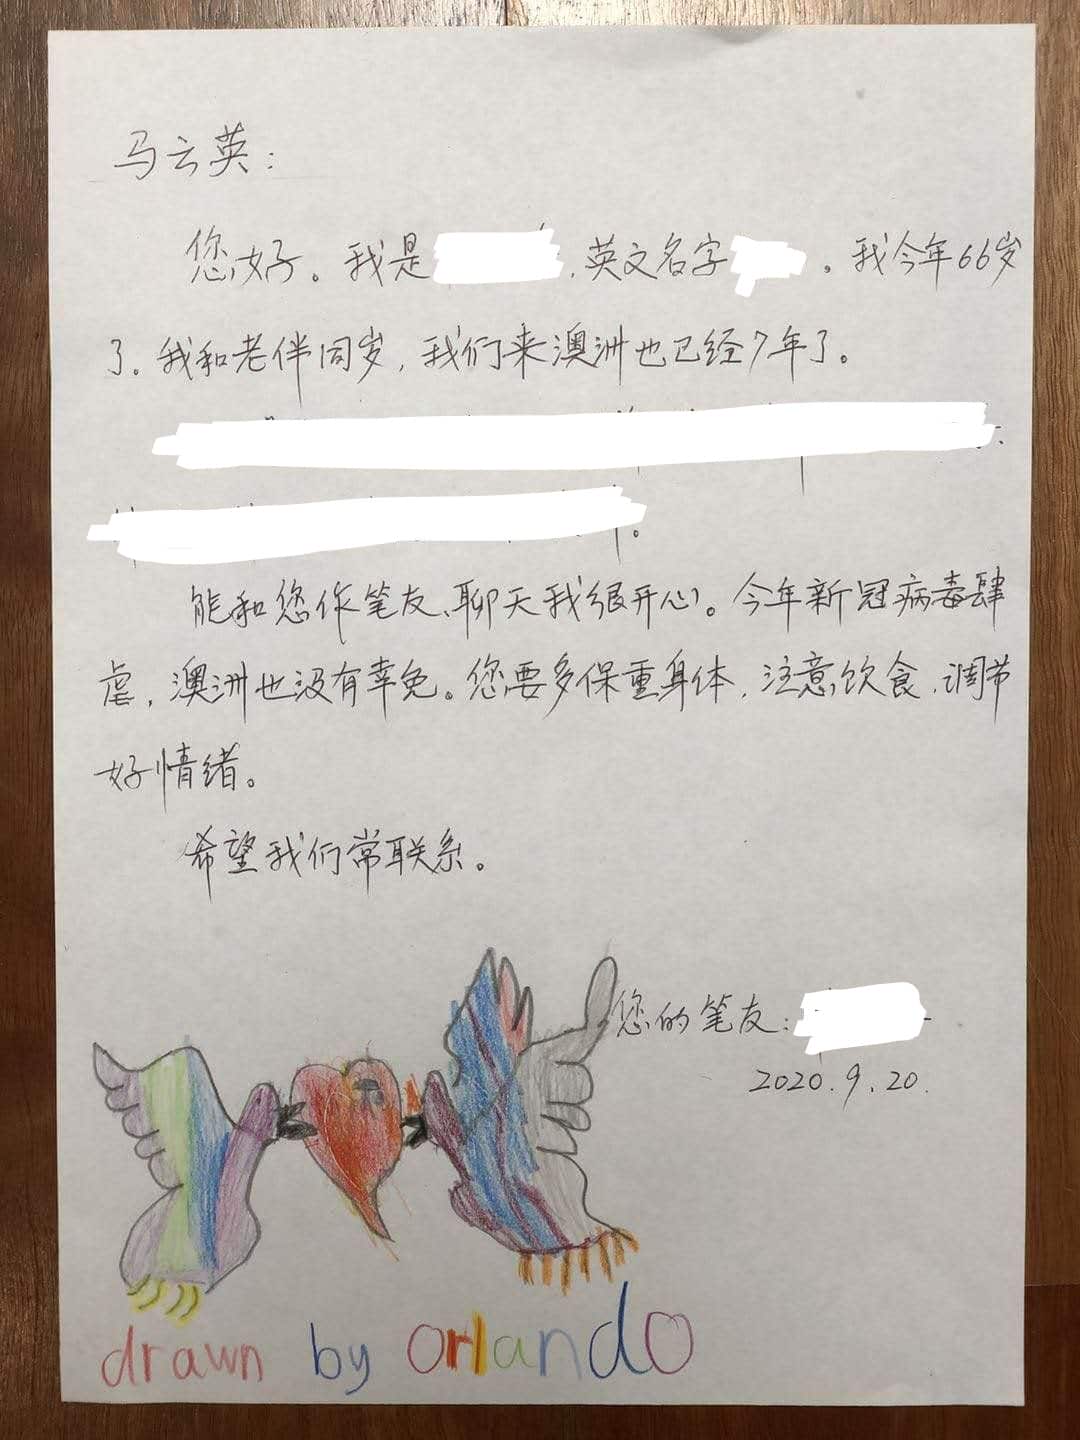 马云英：
您好。我是，英文名字。我今年66岁
了。我和老伴同岁，我们来澳洲也已经7年了。
能和您作笔友、聊天我很开心。今年新冠病毒肆
虐，澳洲也没有幸免。您要多保重身体，注意饮食，调节
好情绪。
希望我们常联系。
您的笔友：
2020.9.20.
drawn by orlando